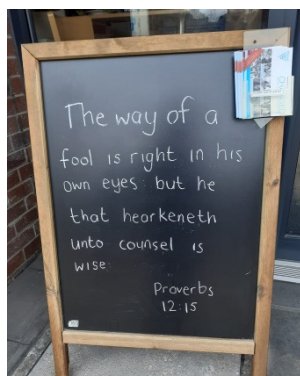 The way of a
fool is right in his
own eyes: but he
that hearkeneth
unto counsel is
wise.
Proverbs
12:15